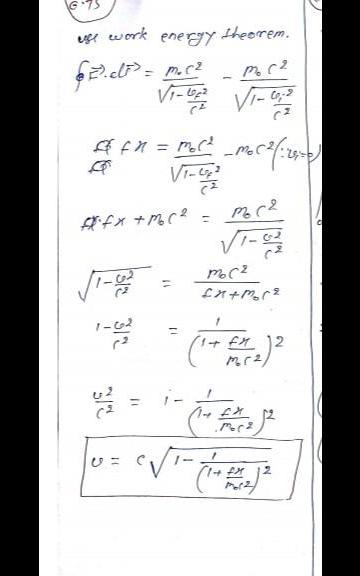 6.75
use work energy theorem.
∮F⃗.dr⃗ = m₀c²/√(1-v_f²/c²) - m₀c²/√(1-v_i²/c²)
fx = m₀c²/√(1-v_f²/c²) - m₀c² (∵ v_i=0)
fx + m₀c² = m₀c²/√(1-v²/c²)
√(1-v²/c²) = m₀c²/(fx+m₀c²)
1-v²/c² = 1/(1+fx/m₀c²)²
v²/c² = 1 - 1/(1+fx/m₀c²)²
v = c√(1-1/(1+fx/m₀c²)²)